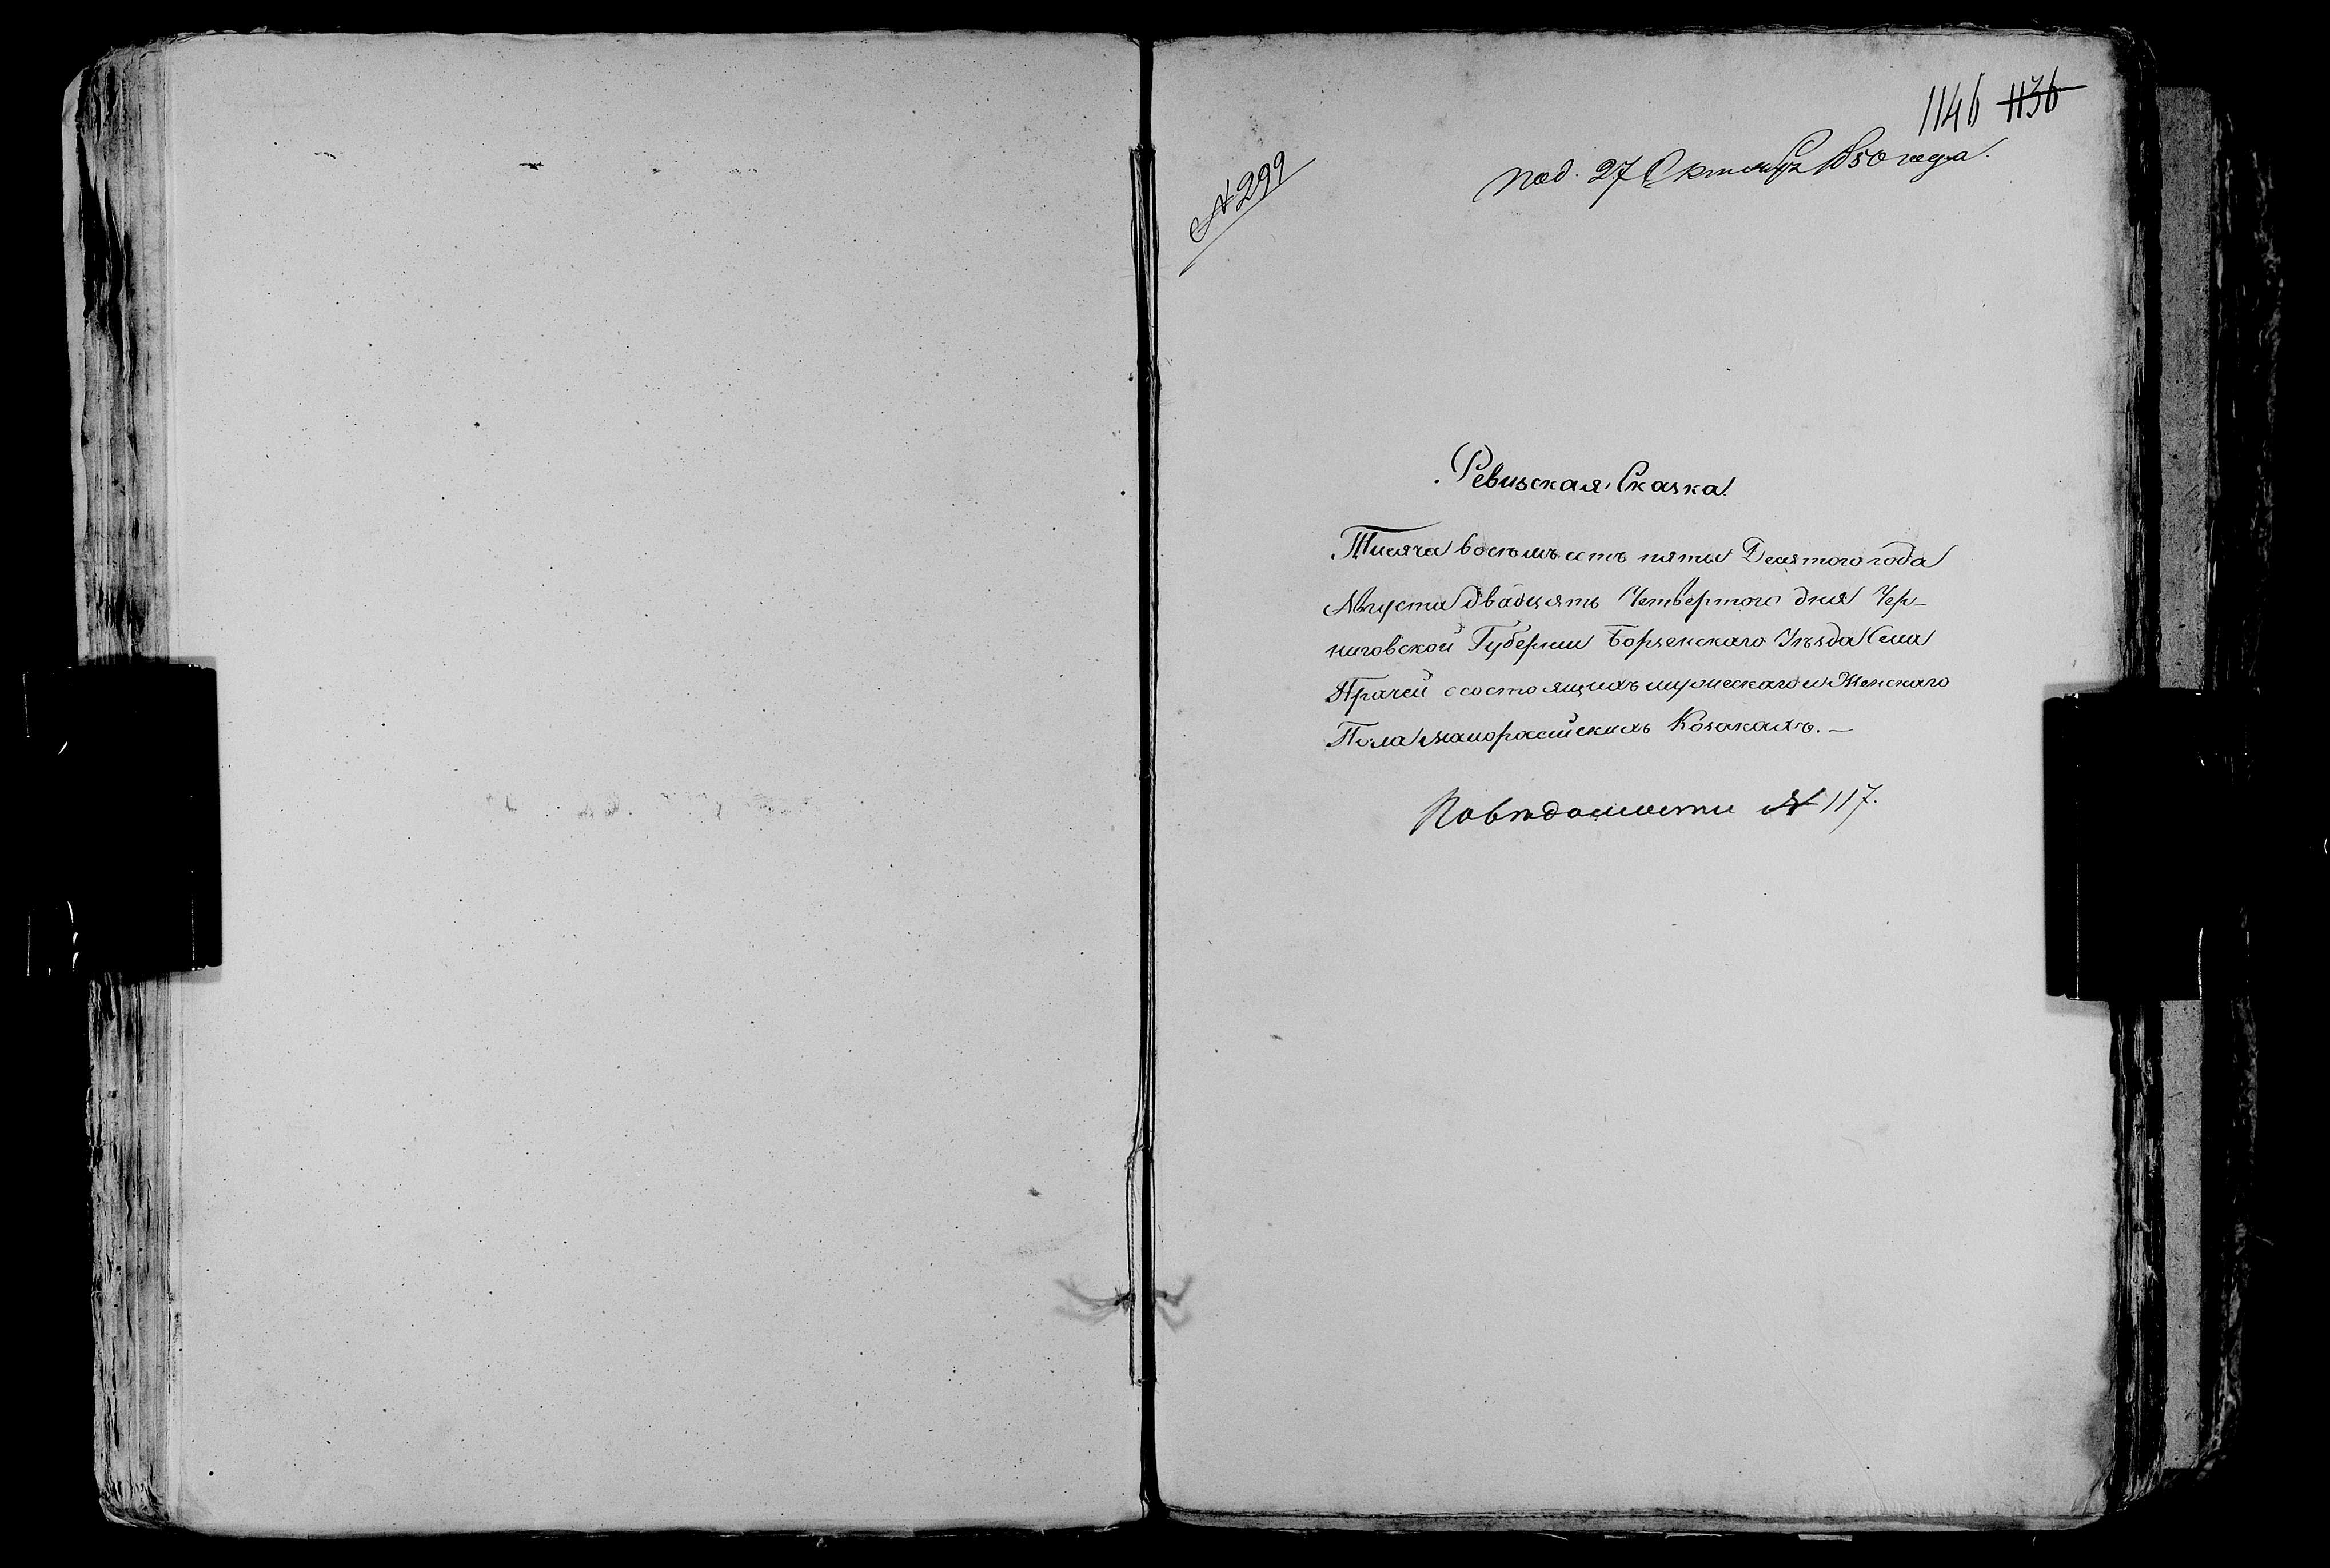 1146 1136
№ 299
под. 27 Октября 1850 года.
Ревизская Сказка
Тисяча восемъсотъ пятьи Десятого года
Августа двадцять Четвертого дня Чер-
ниговской Губернии Борзенскаго Уезда Села
Прачей о состоящихъ мужескаго и Женскаго
Пола малоросийскихъ Козакахъ.—
По ведомости № 117.